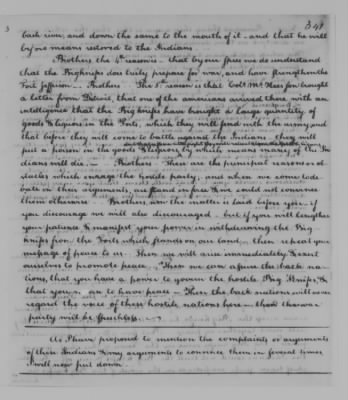 349
back river, and down the same to the mouth of it - and that he will
by or means restored to the Indians
Brothers the 4th reason is - that by our spies we do understand
that the Bigknifes does truly prepare for war, and have strengthen the
Fort Jefferson - Brothers - The 5th reason is that Colt McKees son brought
a letter from Detroit, that one of the americans arrived there with an
intelligence that the Big knifes have bought a large quantity of
goods & liquors in the Ports, which they will send with the army and
that before they will come to battle against the Indians they will
put a poison in the goods & liquors by which means many of the In
dians will die. - Brothers - There are the principal reasons or ob
stacles which enrage the hostile party, and when we come to de
bate on their arguments, we stand on force & we could not convince
them otherwise - Brothers, now the matter is laid before you, if
you discourage we will also discouraged - but if you will lengthen
your patience & manifest your power in withdrawing the Big
knifes from the Forts which stands on our land, then repeat your
message of peace to us - Then we will arise immediately & exert
ourselves to promote peace - Then we can assure the back na
tions, that you have a power to govern the hostile Big Knifes, &
that you mean to have peace - Then the back nations will never
regard the voice of these hostile nations here - then the war
party will be speechless -
As I have proposed to mention the complaints or arguments
of these Indians & my arguments to convince them in several times
I will now put down